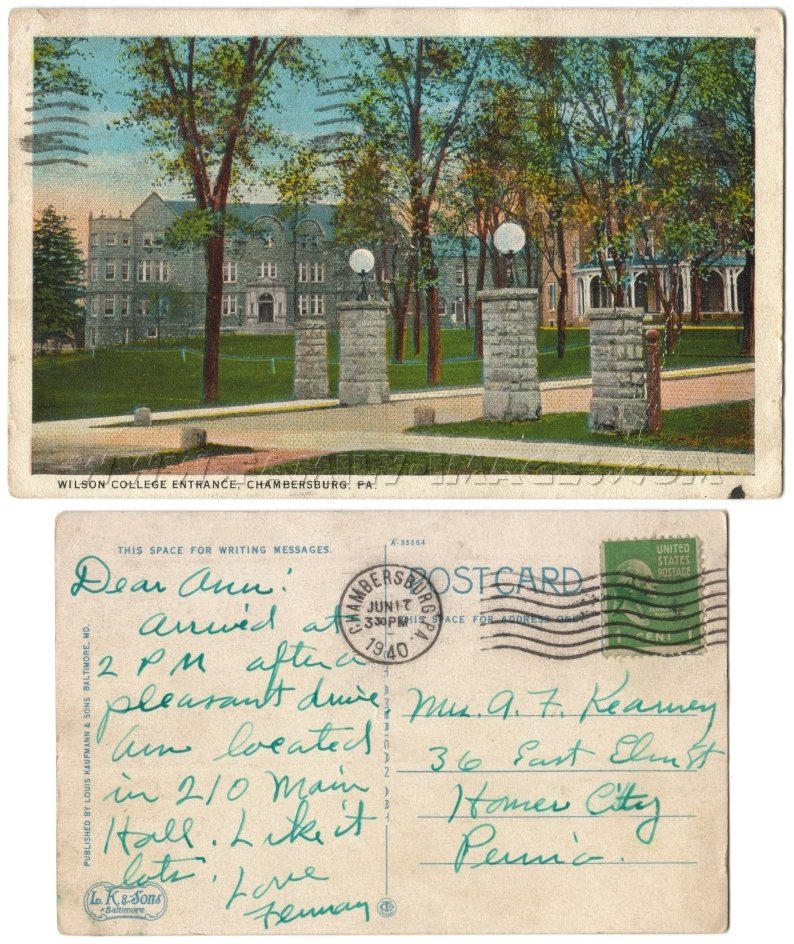 WILSON COLLEGE ENTRANCE, CHAMBERSBURG, PA.
THIS SPACE FOR WRITING MESSAGES.
Dear Ann:
Arrived at
2 PM after a
pleasant drive.
Am located
in 210 Main
Hall. Like it
lots. Love
A-35664
POST CARD
THIS SPACE FOR ADDRESS ONLY
CHAMBERSBURG, PA.
JUN 17
330 PM
1940
UNITED
STATES
POSTAGE
1 CENT 1
Mrs. A. F. Kearney
36 East Elm St
Homer City
Penn'a.
PUBLISHED BY LOUIS KAUFMANN & SONS BALTIMORE, MD.
L. K. & Sons
Baltimore